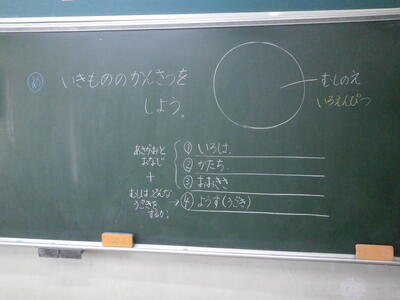 め いきもののかんさつを
しよう。
むしのえ
いろえんぴつ
あさがおと
おなじ
+
むしはどんな
うごきを
するか?
① いろは、
② かたち
③ おおきさ
④ ようす(うごき)